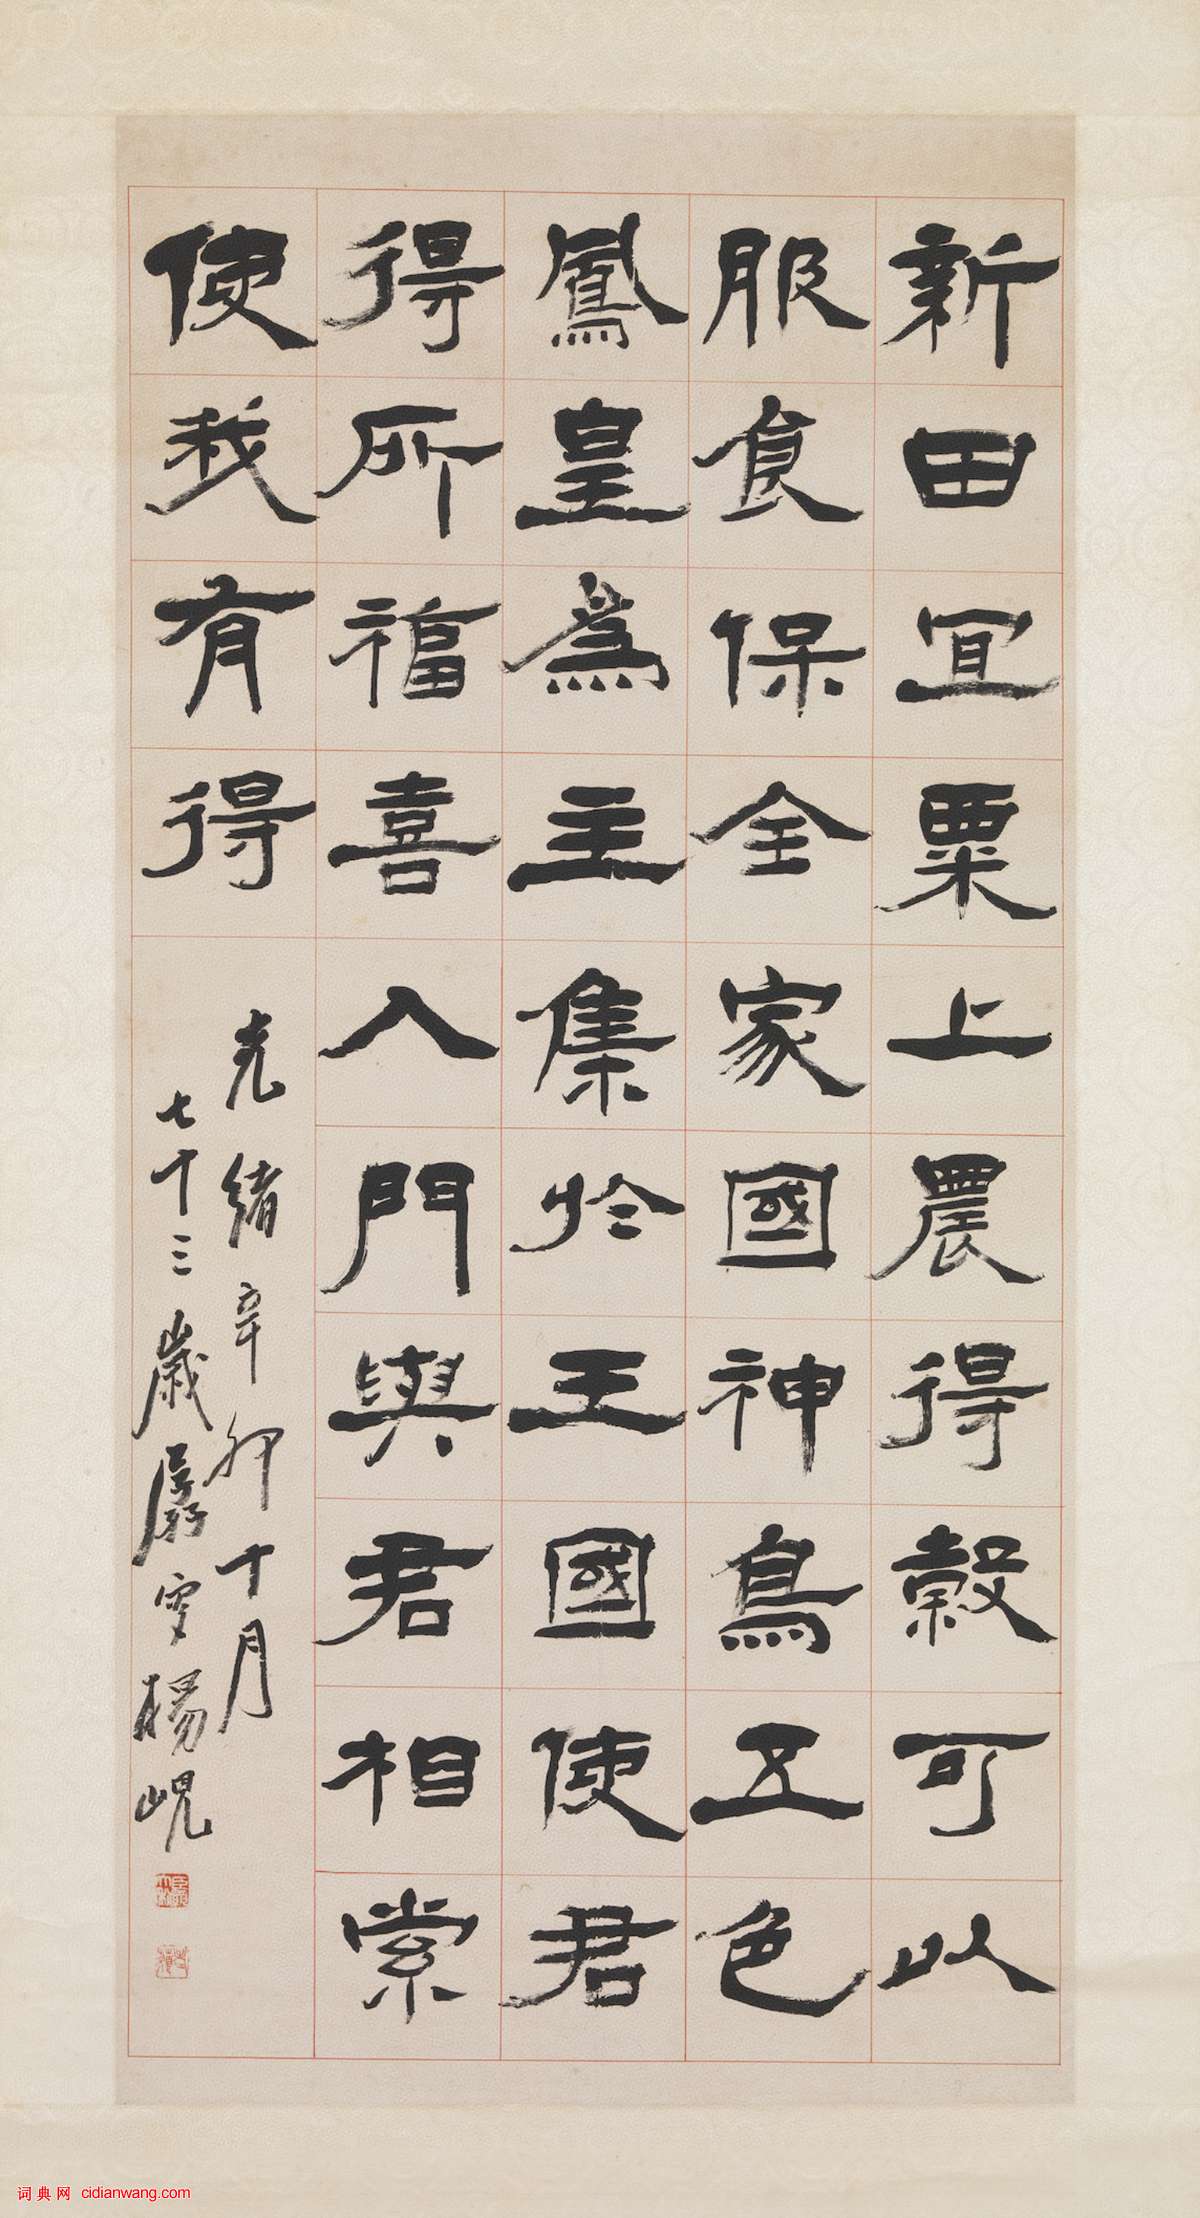 新田宜粟上農得穀可以
服食保全家國神鳥五色
鳳皇爲主集於王國使君
得所福喜入門與君相索
使我有得
光緒辛卯十月
七十三歲孱守楊峴
词典网 cidianwang.com